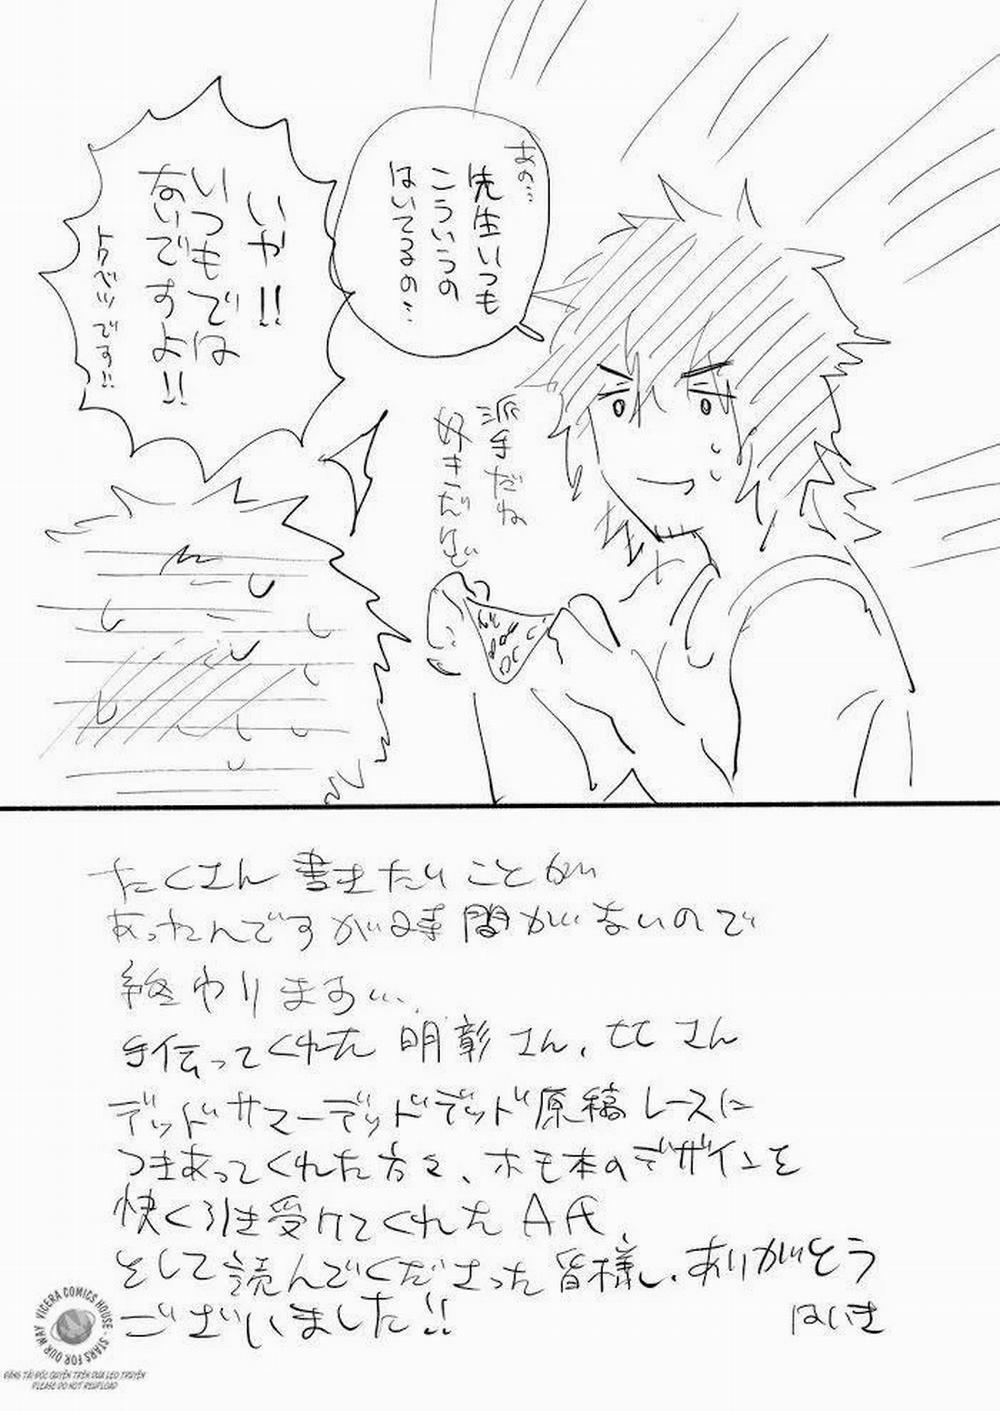 あの…
先生いつも
こういうの
はいてるの…
いや!!
いつもでは
ないですよ!!
トクベツです!!
派手だね
好きだけど
たくさん書きたいことが
あったんですが時間がないので
終わります…
手伝ってくれた明彰さん、ヒヒさん
デッドサマーデッドデッド原稿レースに
つきあってくれた方々、ホモ本のデザインを
快く引き受けてくれたAA、
そして読んでくださった皆様し、ありがとう
ございました!!
はいき
VICERA COMICS HOUSE · STARS FOR OUR WAY
ĐĂNG TẢI ĐỘC QUYỀN TRÊN DƯA LEO TRUYỆN
PLEASE DO NOT REUPLOAD